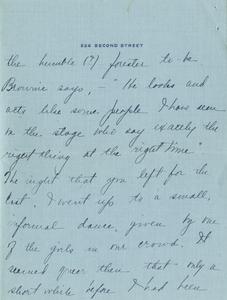 224 SECOND STREET
the humble (?) forester to be
Brownie says, - "He looks and
acts like some people I have seen
on the stage who say exactly the
right thing at the right time."
The night that you left for the
last, I went up to a small,
informal dance, given by one
of the girls in our crowd. It
seemed queer then that only a
short while before I had been